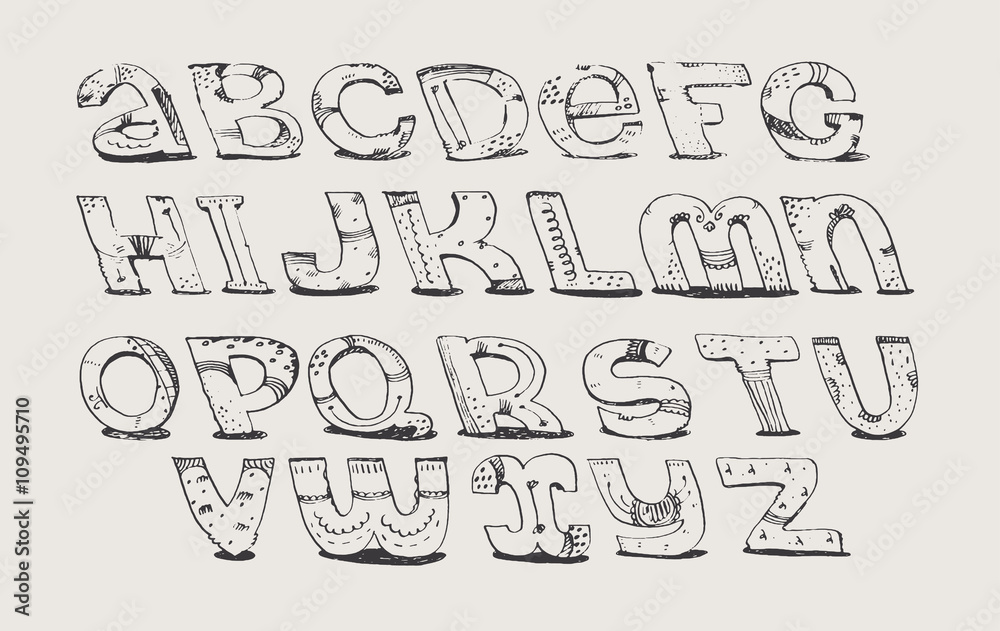 aBCDeFG
HIJKLmn
OPQRSTU
VWxyZ
Adobe Stock | #109495710